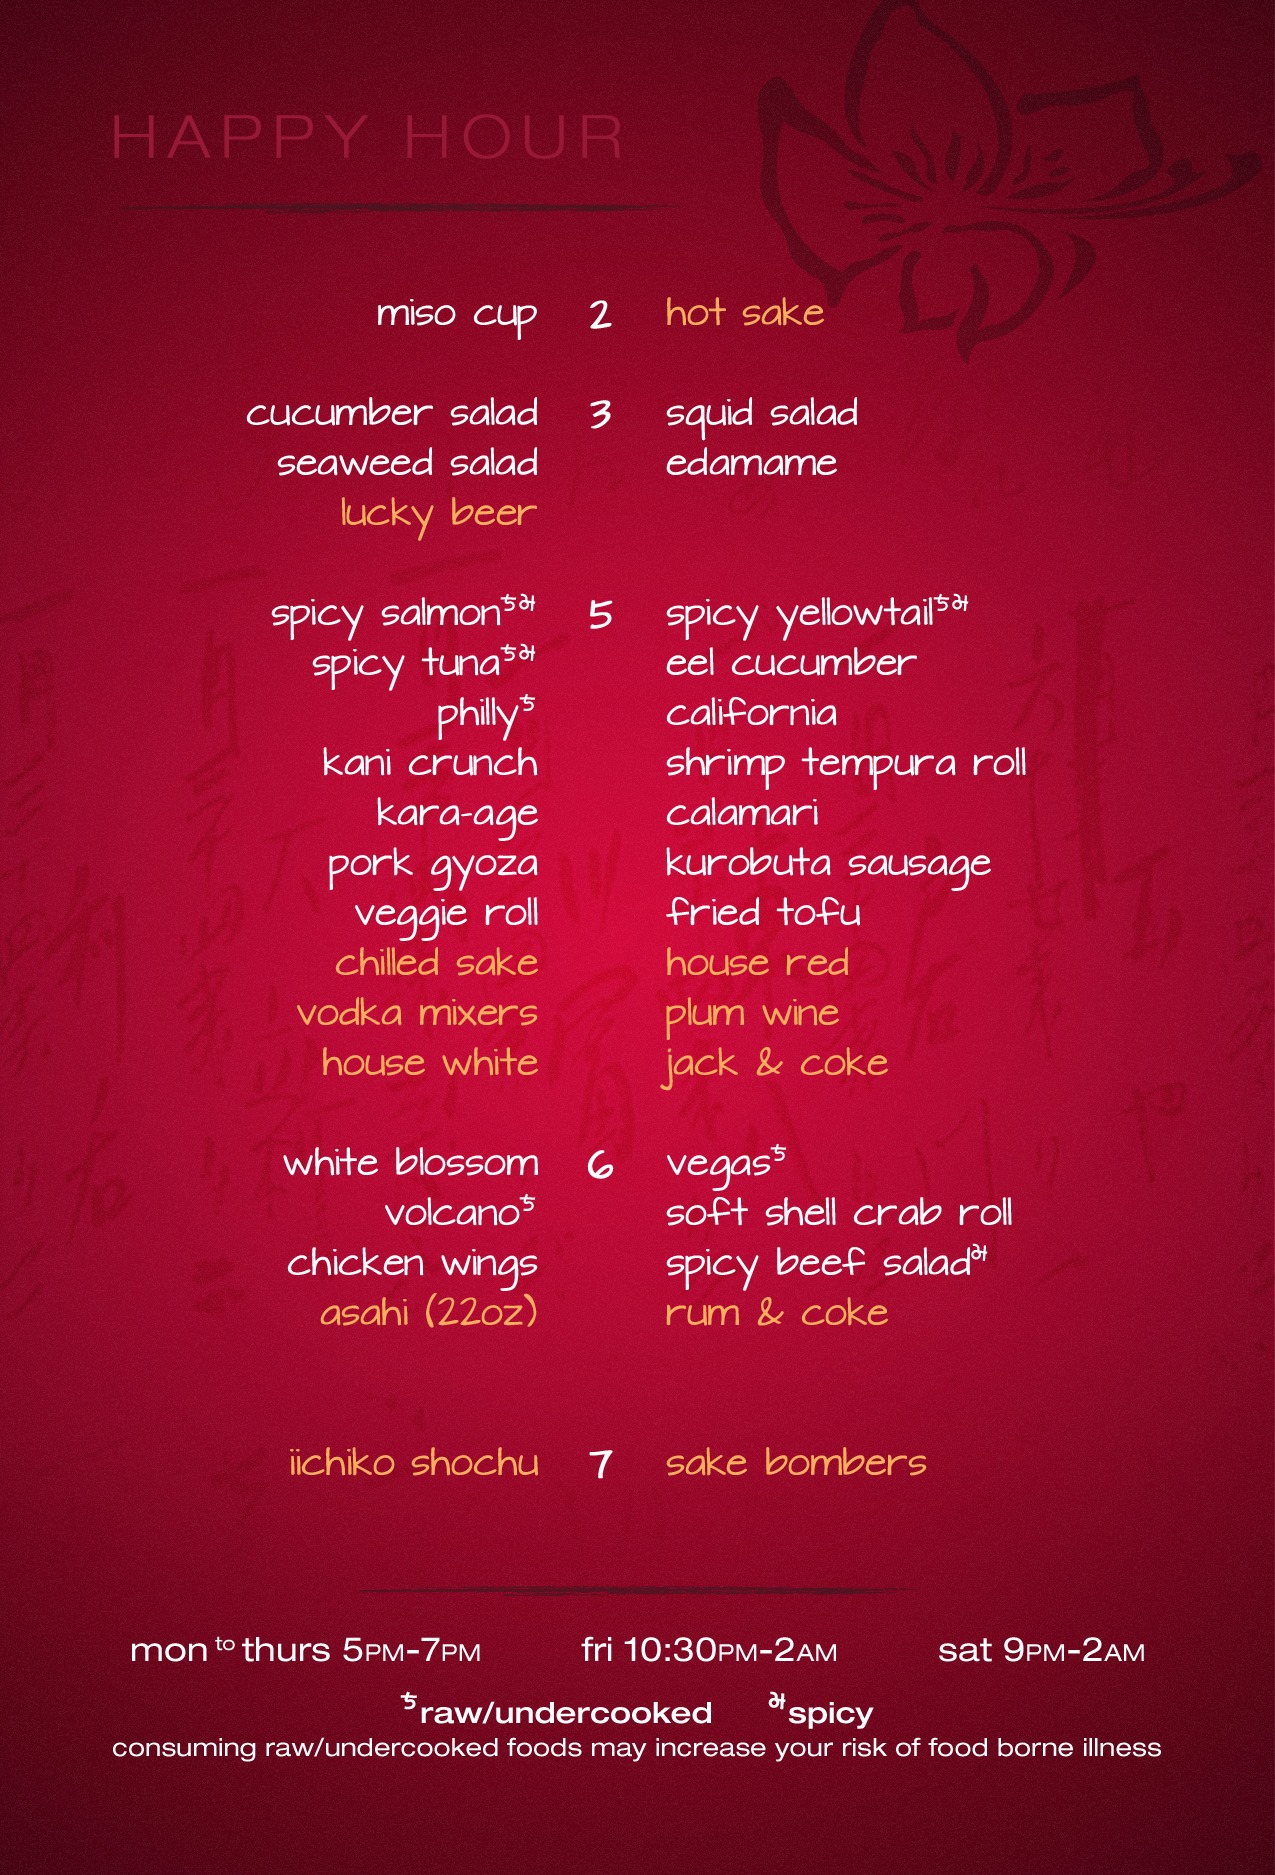 HAPPY HOUR
miso cup 2 hot sake
cucumber salad 3 squid salad
seaweed salad edamame
lucky beer
spicy salmonちみ 5 spicy yellowtailちみ
spicy tunaちみ eel cucumber
phillyち california
kani crunch shrimp tempura roll
kara-age calamari
pork gyoza kurobuta sausage
veggie roll fried tofu
chilled sake house red
vodka mixers plum wine
house white jack & coke
white blossom 6 vegasち
volcanoち soft shell crab roll
chicken wings spicy beef saladみ
asahi (22oz) rum & coke
iichiko shochu 7 sake bombers
mon to thurs 5PM-7PM fri 10:30PM-2AM sat 9PM-2AM
ちraw/undercooked みspicy
consuming raw/undercooked foods may increase your risk of food borne illness